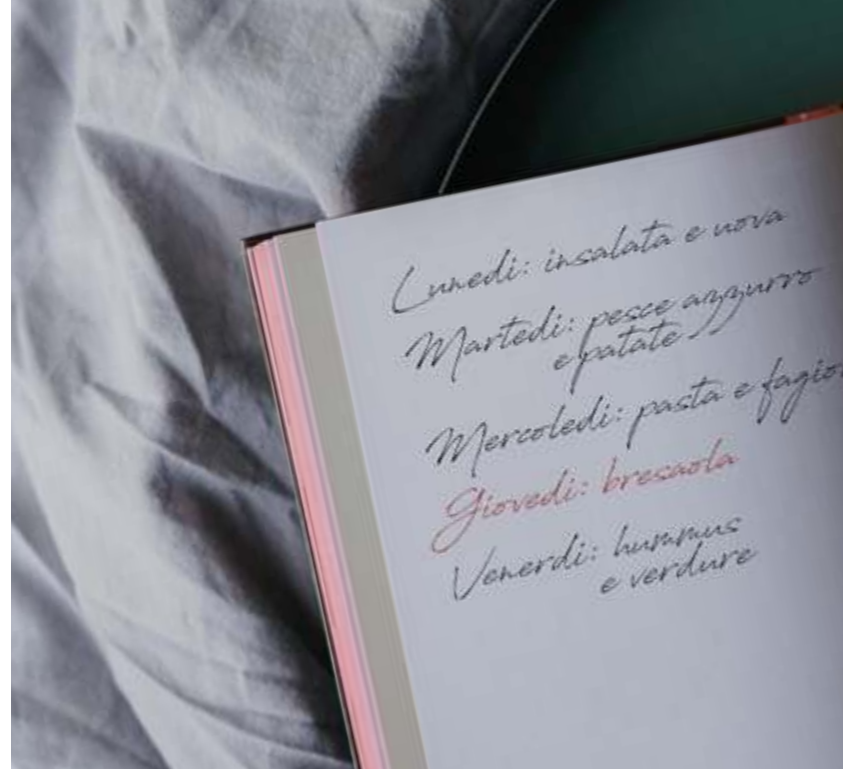 Lunedi: insalata e uova
Martedi: pesce azzurro
e patate
Mercoledi: pasta e fagio
Giovedi: bresaola
Venerdi: hummus
e verdure